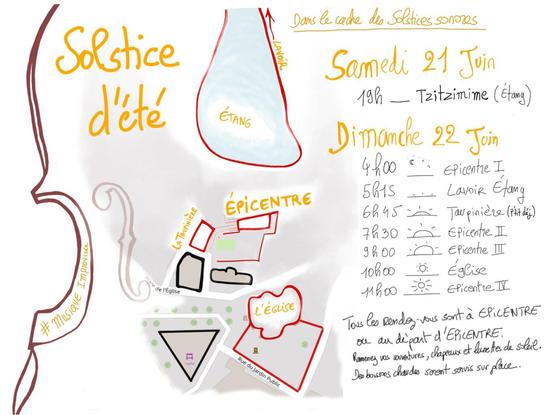 Dans le cadre des Solstices sonores
Solstice
d'été
LAVOIR
ÉTANG
Samedi 21 Juin
19h — Tzitzimime (Étang)
Dimanche 22 Juin
4h00 Epicentre I
5h15 Lavoir Étang
6h45 Taupinière (Ptit dèj)
7h30 Epicentre II
9h00 Epicentre III
10h00 Église
11h00 Epicentre IV
LA TAUPINIÈRE
ÉPICENTRE
de l'Église
L'ÉGLISE
Rue du Jardin Public
# MUSIQUE IMPROVISÉE
Tous les Rendez-vous sont à EPICENTRE
ou au départ d'EPICENTRE.
Ramenez vos couvertures, chapeaux et lunettes de soleil.
Des boissons chaudes seront servies sur place.